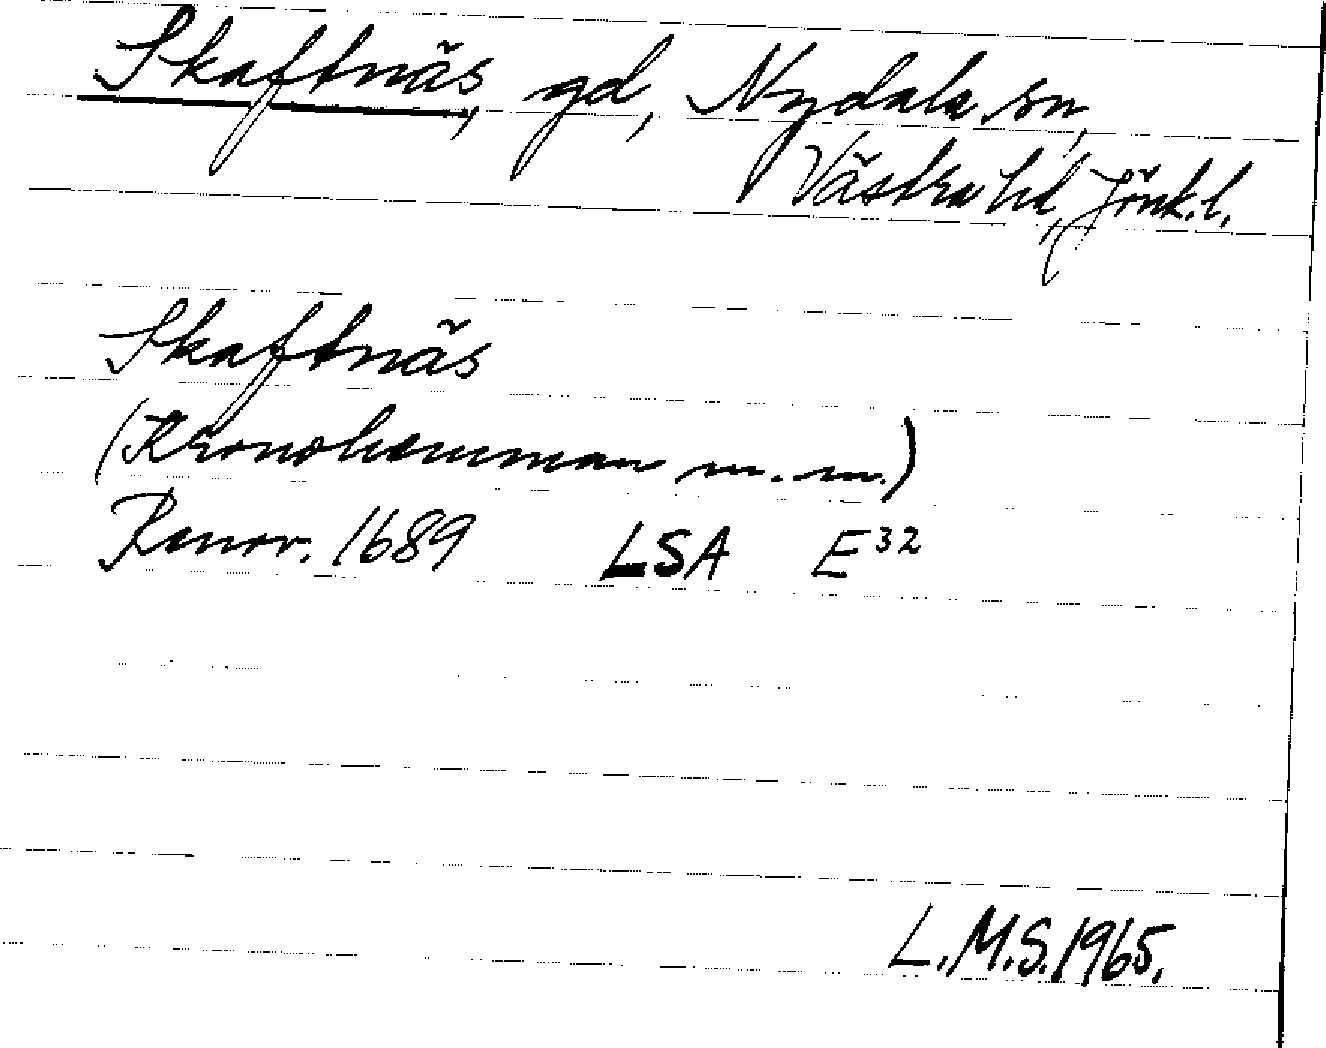 Skaftnäs, gd, Nydala sn,
Västra hd, Jönk.l.
Skaftnäs
(Kronohemman m.m.)
Renov. 1689 LSA E32
L.M.S. 1965.